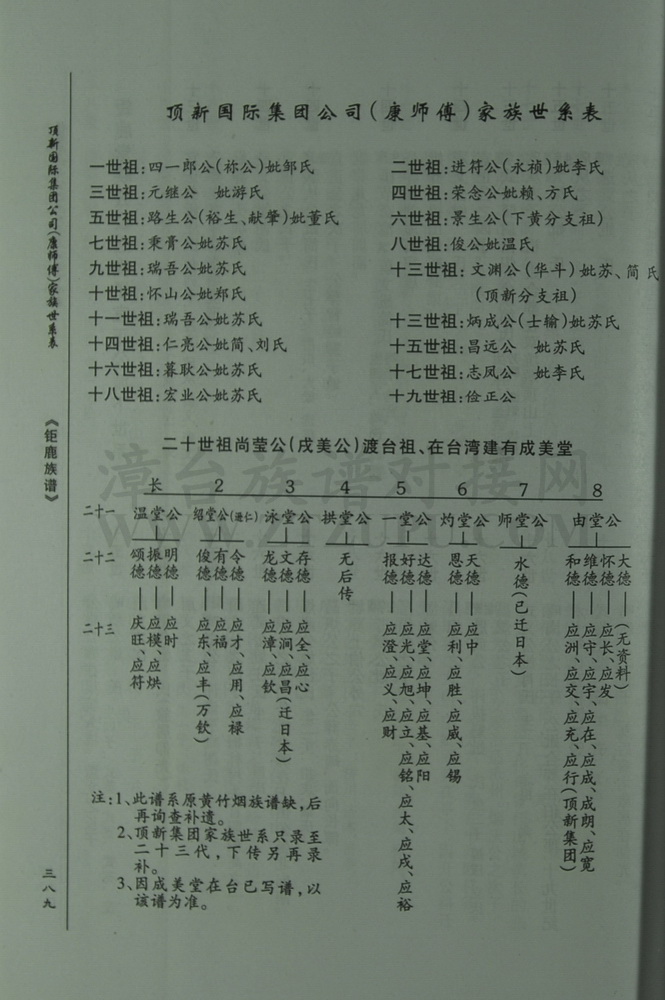 顶新国际集团公司(康师傅)家族世系表
一世祖:四一郎公(祢公)妣邹氏
二世祖:进符公(永祯)妣李氏
三世祖:元继公 妣游氏
四世祖:荣念公妣赖、方氏
五世祖:路生公(裕生、献肇)妣董氏
六世祖:景生公(下黄分支祖)
七世祖:秉膏公妣苏氏
八世祖:俊公妣温氏
九世祖:瑞吾公妣苏氏
十三世祖:文渊公(华斗)妣苏、简氏
(顶新分支祖)
十世祖:怀山公妣郑氏
十一世祖:瑞吾公妣苏氏
十三世祖:炳成公(士输)妣苏氏
十四世祖:仁亮公妣简、刘氏
十五世祖:昌远公 妣苏氏
十六世祖:暮耿公妣苏氏
十七世祖:志凤公 妣李氏
十八世祖:宏业公妣苏氏
十九世祖:俭正公
二十世祖尚莹公(戌美公)渡台祖、在台湾建有成美堂
长 2 3 4 5 6 7 8
二十一 温堂公 绍堂公(逊仁) 泳堂公 拱堂公 一堂公 灼堂公 师堂公 由堂公
二十二
明德——应时
振德——应模、应烘
颂德——庆旺、应符
令德——应才、应用、应禄
有德——应福
俊德——应东、应丰(万钦)
存德——应全、应心
文德——应涧、应昌(迁日本)
龙德——应漳、应钦
无后传
达德——应堂、应坤、应基、应阳
好德——应光、应旭、应立、应铭、应太、应戌、应裕
报德——应澄、应义、应财
天德——应中
恩德——应利、应胜、应威、应锡
水德(已迁日本)
大德——(无资料)
怀德——应长、应发
维德——应守、应宇、应在、应成、成朗、应宽
和德——应洲、应交、应充、应行(顶新集团)
二十三
注:1、此谱系原黄竹烟族谱缺,后
再询查补遗。
2、顶新集团家族世系只录至
二十三代,下传另再录
补。
3、因成美堂在台已写谱,以
该谱为准。
顶新国际集团公司(康师傅)家族世系表
《钜鹿族谱》
三八九
漳台族谱对接网